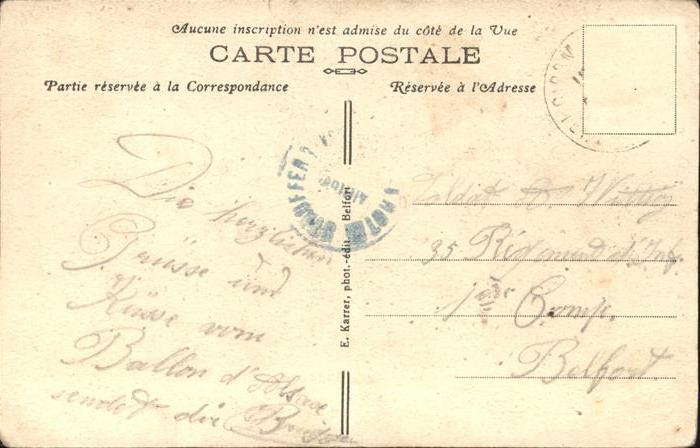 Aucune inscription n'est admise du côté de la Vue
CARTE POSTALE
Partie réservée à la Correspondance
Réservée à l'Adresse
Die herzlichen
Grüsse und
Küsse vom
Ballon d'Alsace
sendet dir
E. Karrer, phot.-édit., Belfort
35 Régiment d'Inf.
Comp.
Belfort